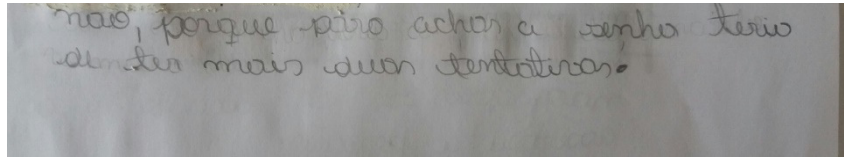 não, porque para achar a senha teria
de ter mais duas tentativas.